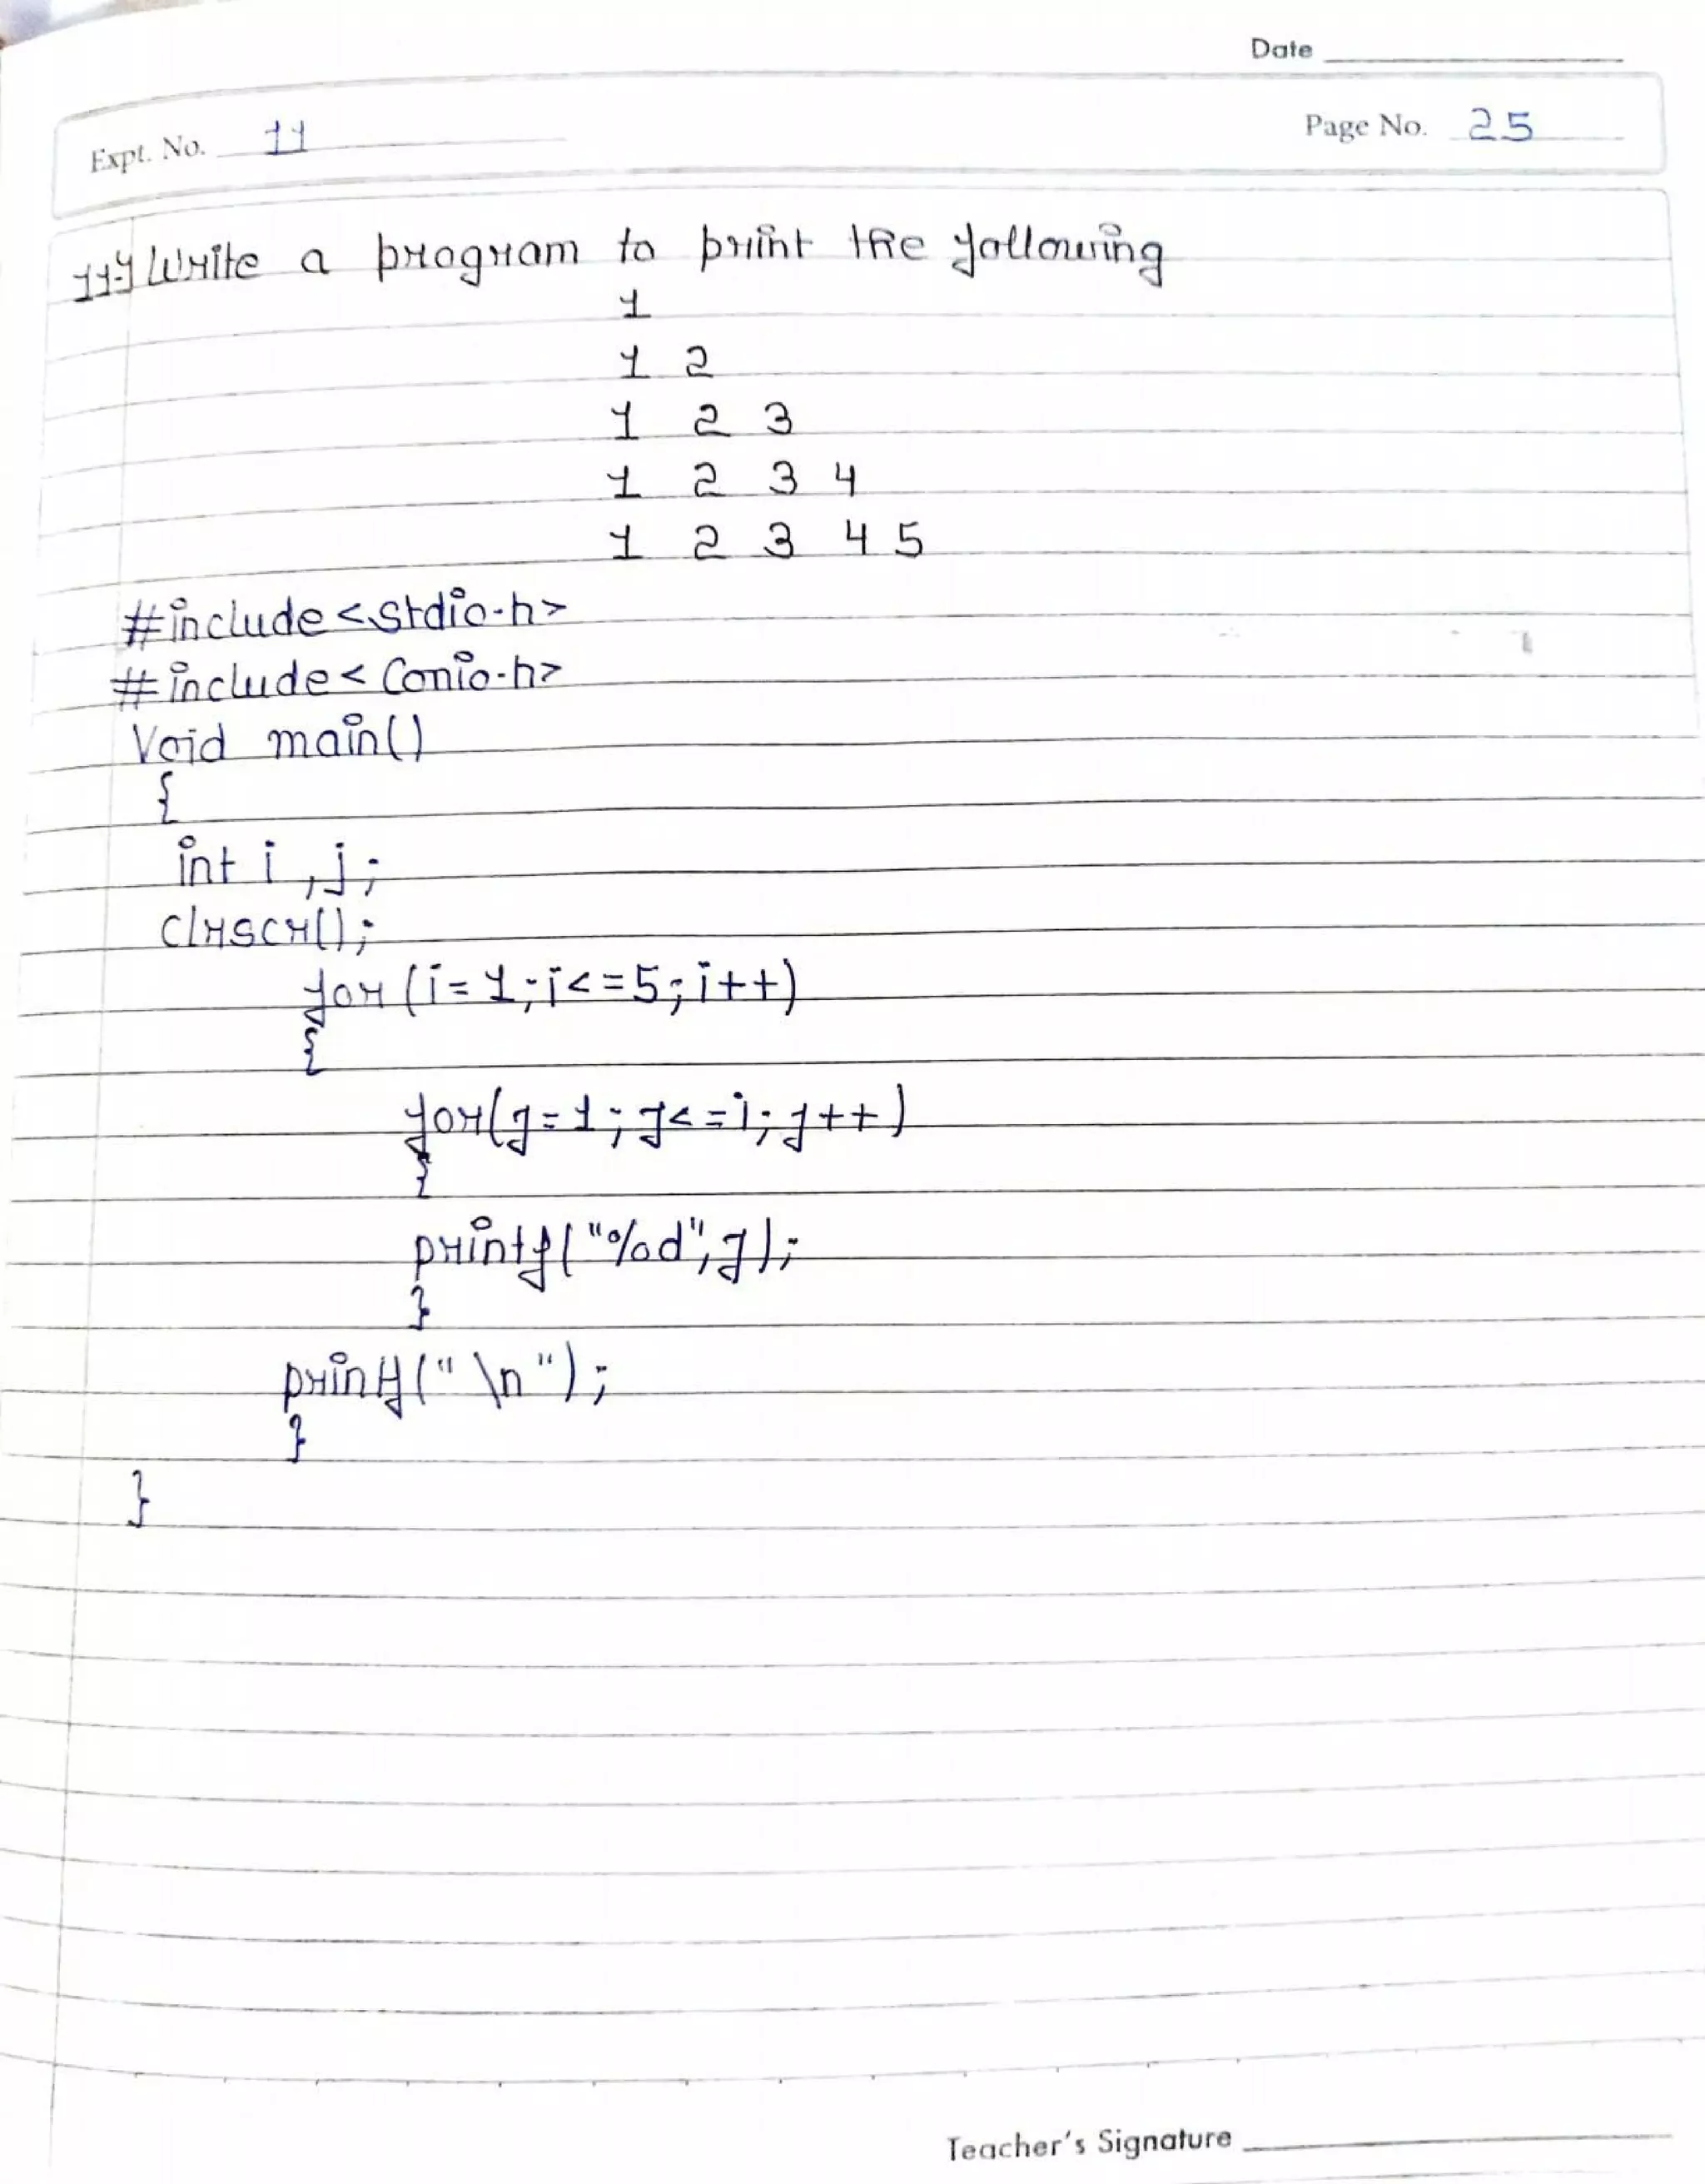 Date
Expt. No. 11
Page No. 25
11-) Write a program to print the following
1
1 2
1 2 3
1 2 3 4
1 2 3 4 5
#include <stdio.h>
#include < Conio.h>
Void main()
{
int i ,j ;
clrscr();
for (i= 1;i<=5;i++)
{
for(j=1;j<=i;j++)
{
printf("%d",j);
}
printf(" \n ");
}
}
Teacher's Signature